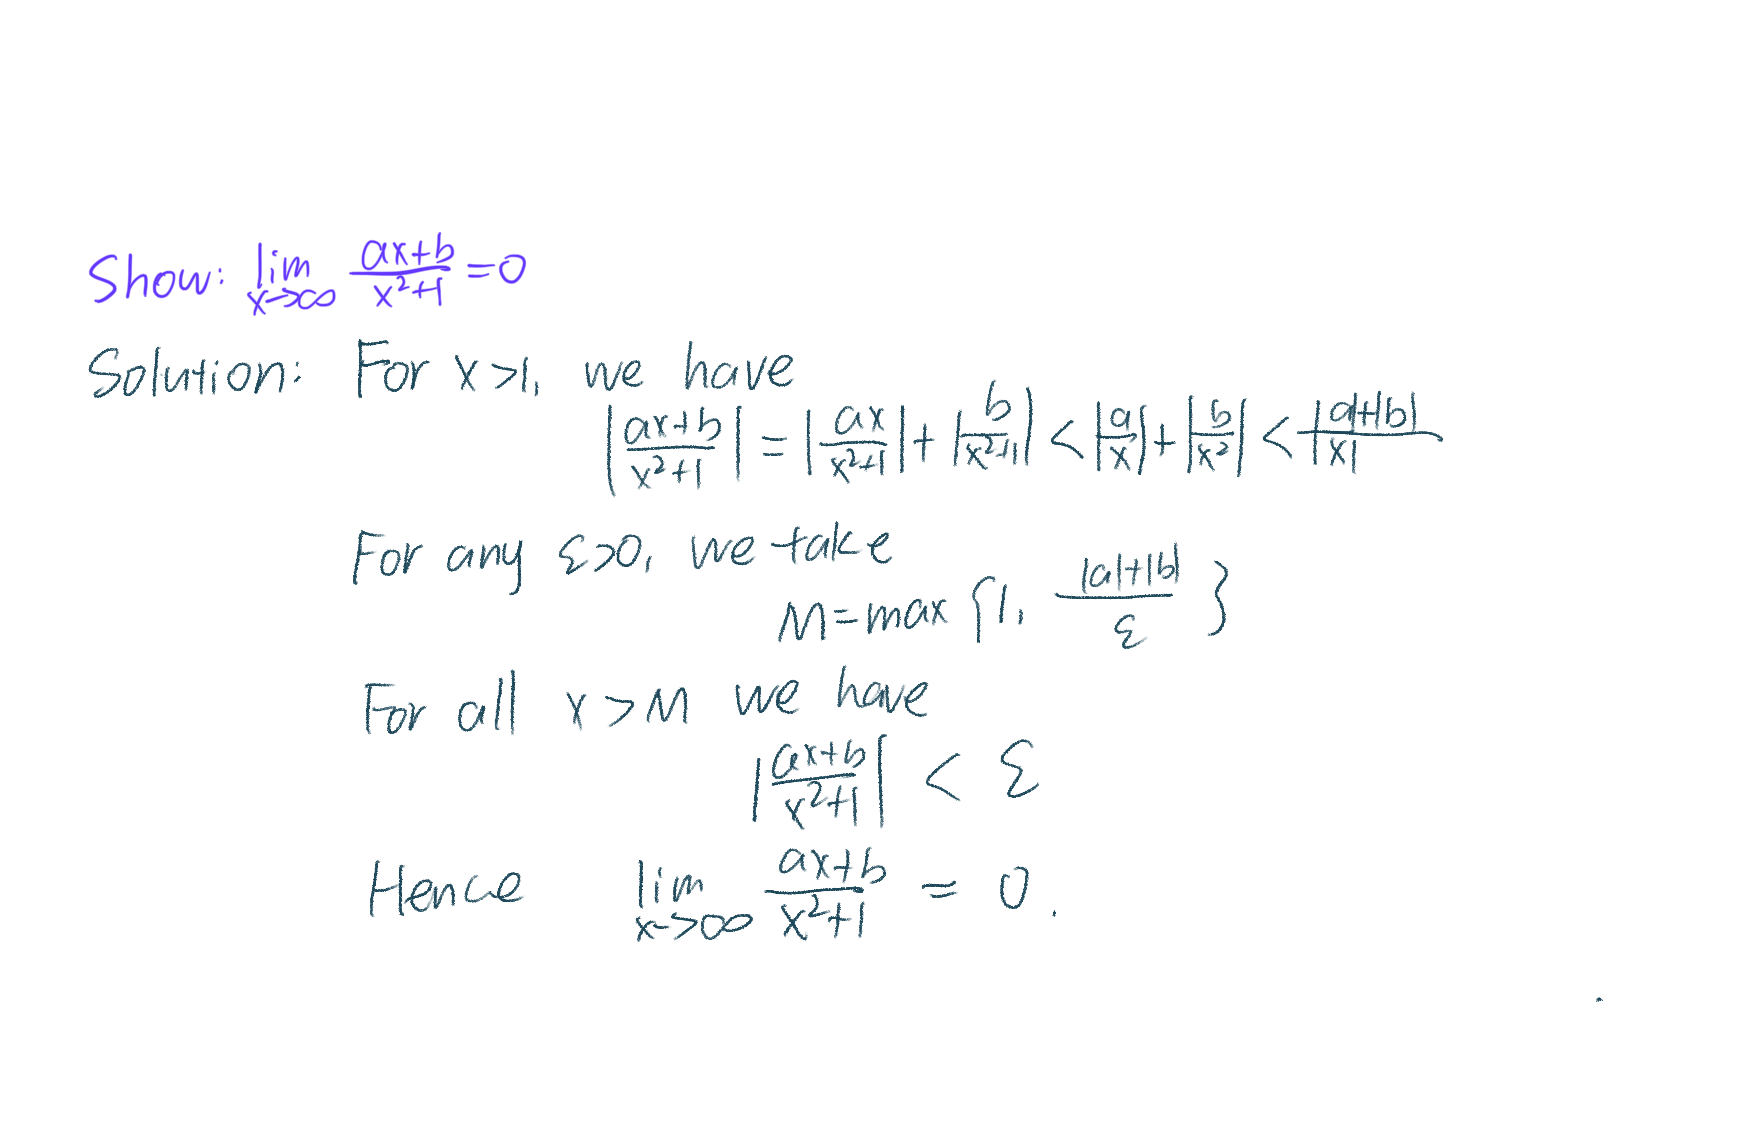 Show: lim x→∞ (ax+b)/(x²+1) = 0
Solution: For x>1, we have
|(ax+b)/(x²+1)| = |ax/(x²+1)| + |b/(x²+1)| < |a/x| + |b/x²| < (|a|+|b|)/|x|
For any ε>0, we take
M = max {1, (|a|+|b|)/ε}
For all x > M we have
|(ax+b)/(x²+1)| < ε
Hence lim x→∞ (ax+b)/(x²+1) = 0.